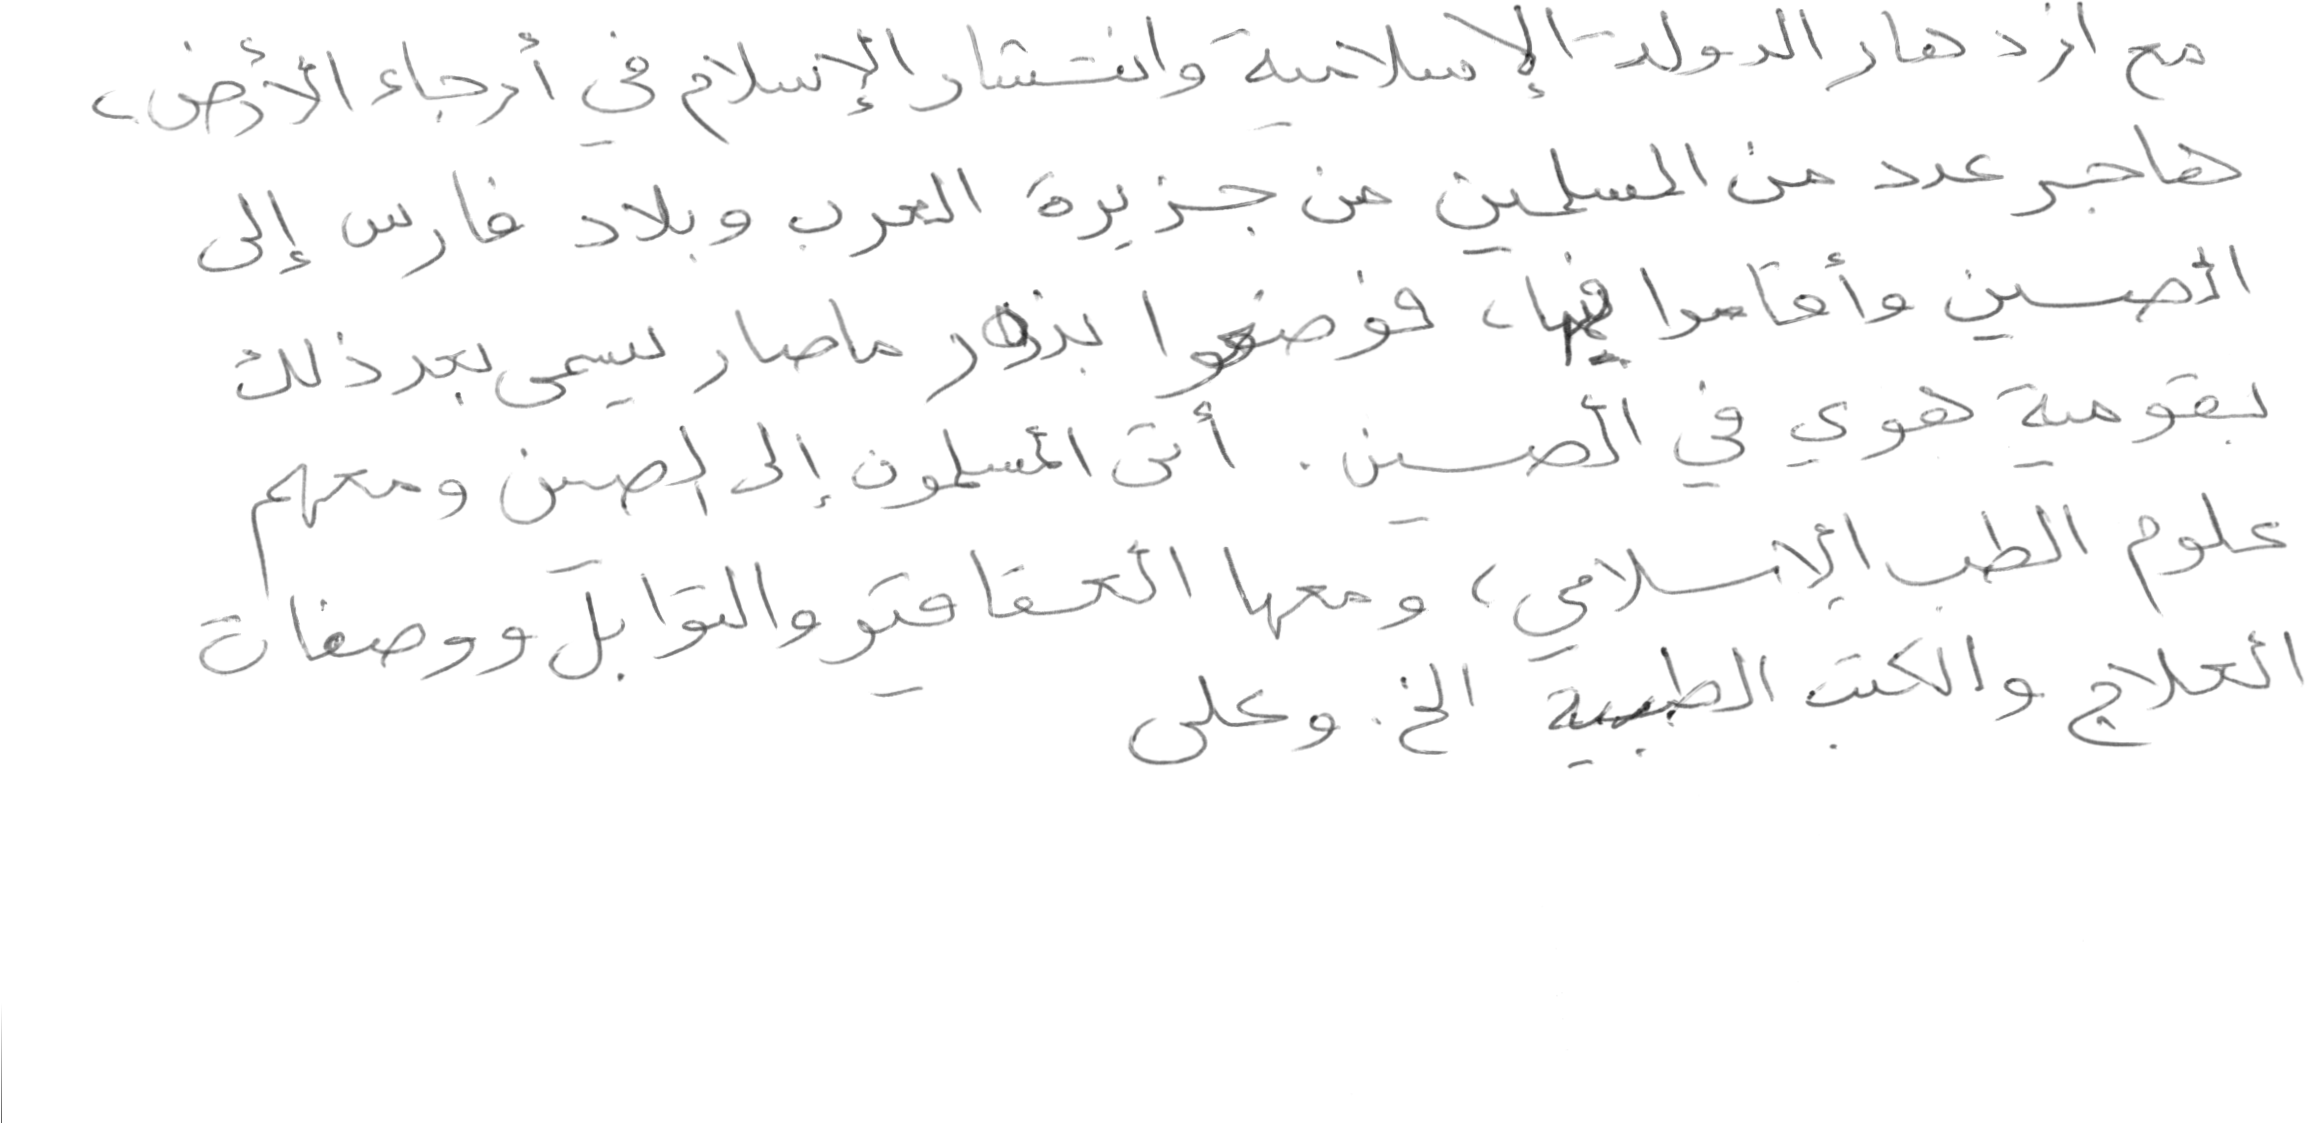 مع ازدهار الدولة الإسلامية وانتشار الإسلام في أرجاء الأرض،
هاجر عدد من المسلمين من جزيرة العرب وبلاد فارس إلى
الصين وأقاموا فيها، فوضعوا بذور ما صار يسمى بعد ذلك
بقومية هوي في الصين. أتى المسلمون إلى الصين ومعهم
علوم الطب الإسلامي، ومعها العقاقير والتوابل ووصفات
العلاج والكتب الطبية الخ. وعلى